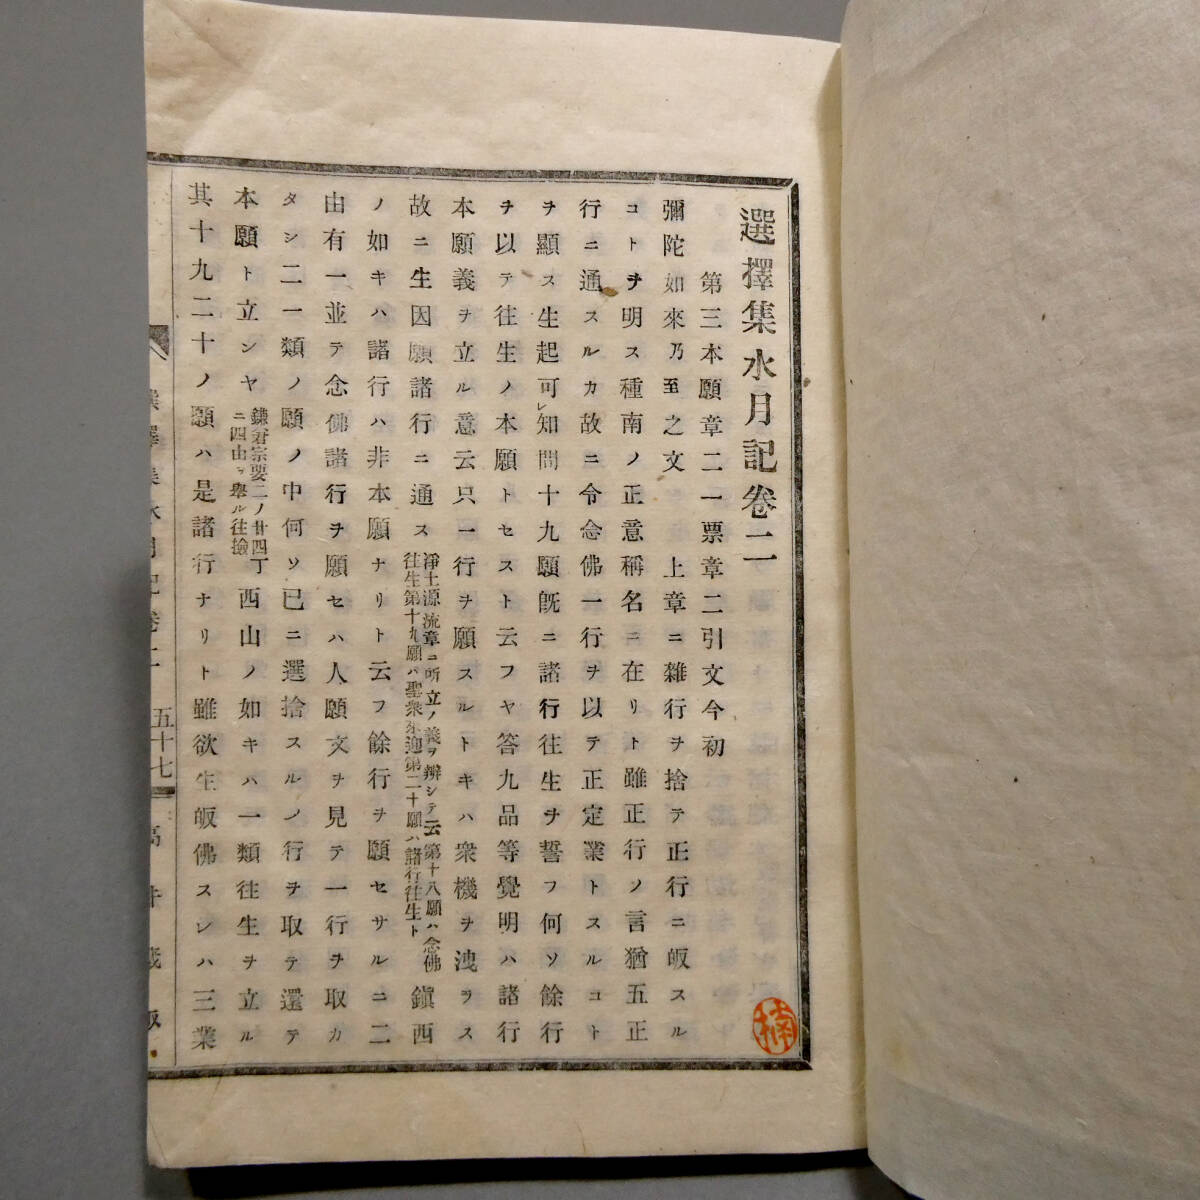 選擇集水月記卷二
第三本願章二一票章二引文今初
彌陀如來乃至之文 上章ニ雜行ヲ捨テ正行ニ皈スル
コトヲ明ス種南ノ正意稱名ニ在リト雖正行ノ言猶五正
行ニ通スルカ故ニ令念佛一行ヲ以テ正定業トスルコト
ヲ顯ス生起可レ知問十九願旣ニ諸行往生ヲ誓フ何ソ餘行
ヲ以テ往生ノ本願トセスト云フヤ答九品等覺明ハ諸行
本願義ヲ立ル意云只一行ヲ願スルトキハ衆機ヲ洩ラス
故ニ生因願諸行ニ通ス淨土源流章ニ所立ノ義ヲ辨シテ云第十八願ハ念佛往生第十九願ハ聖衆來迎第二十願ハ諸行往生ト鎭西
ノ如キハ諸行ハ非本願ナリト云フ餘行ヲ願セサルニ二
由有一並テ念佛諸行ヲ願セハ人願文ヲ見テ一行ヲ取カ
タシ二一類ノ願ノ中何ソ已ニ選捨スルノ行ヲ取テ還テ
本願ト立ンヤ鎌倉宗要二ノ廿四丁ニ四由ヲ擧ル往撿西山ノ如キハ一類往生ヲ立ル
其十九二十ノ願ハ是諸行ナリト雖欲生皈佛スレハ三業
選擇集水月記卷二
五十七
楠